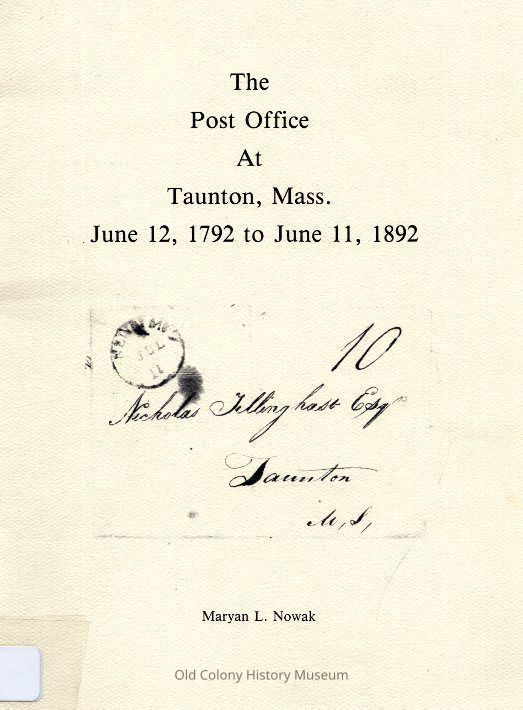 The
Post Office
At
Taunton, Mass.
June 12, 1792 to June 11, 1892
JUL
11
10
Nicholas Tillinghast Esqr
Taunton
Maryan L. Nowak
Old Colony History Museum